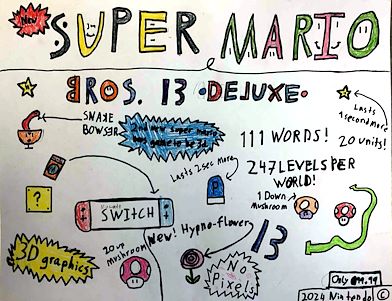 New
SUPER MARIO
BROS. 13 •DELUXE•
SNAKE
BOWSER
2nd new super mario
Lasts
1 second More
111 WORDS!
20 units!
Lasts 2sec More
247 LEVELS PER
WORLD!
1 Down
Mushroom
?
SWITCH
New! Hypno-flower
13
20 up
mushroom
3D graphics
No
Pixels
Only
2024 Nintendo ©